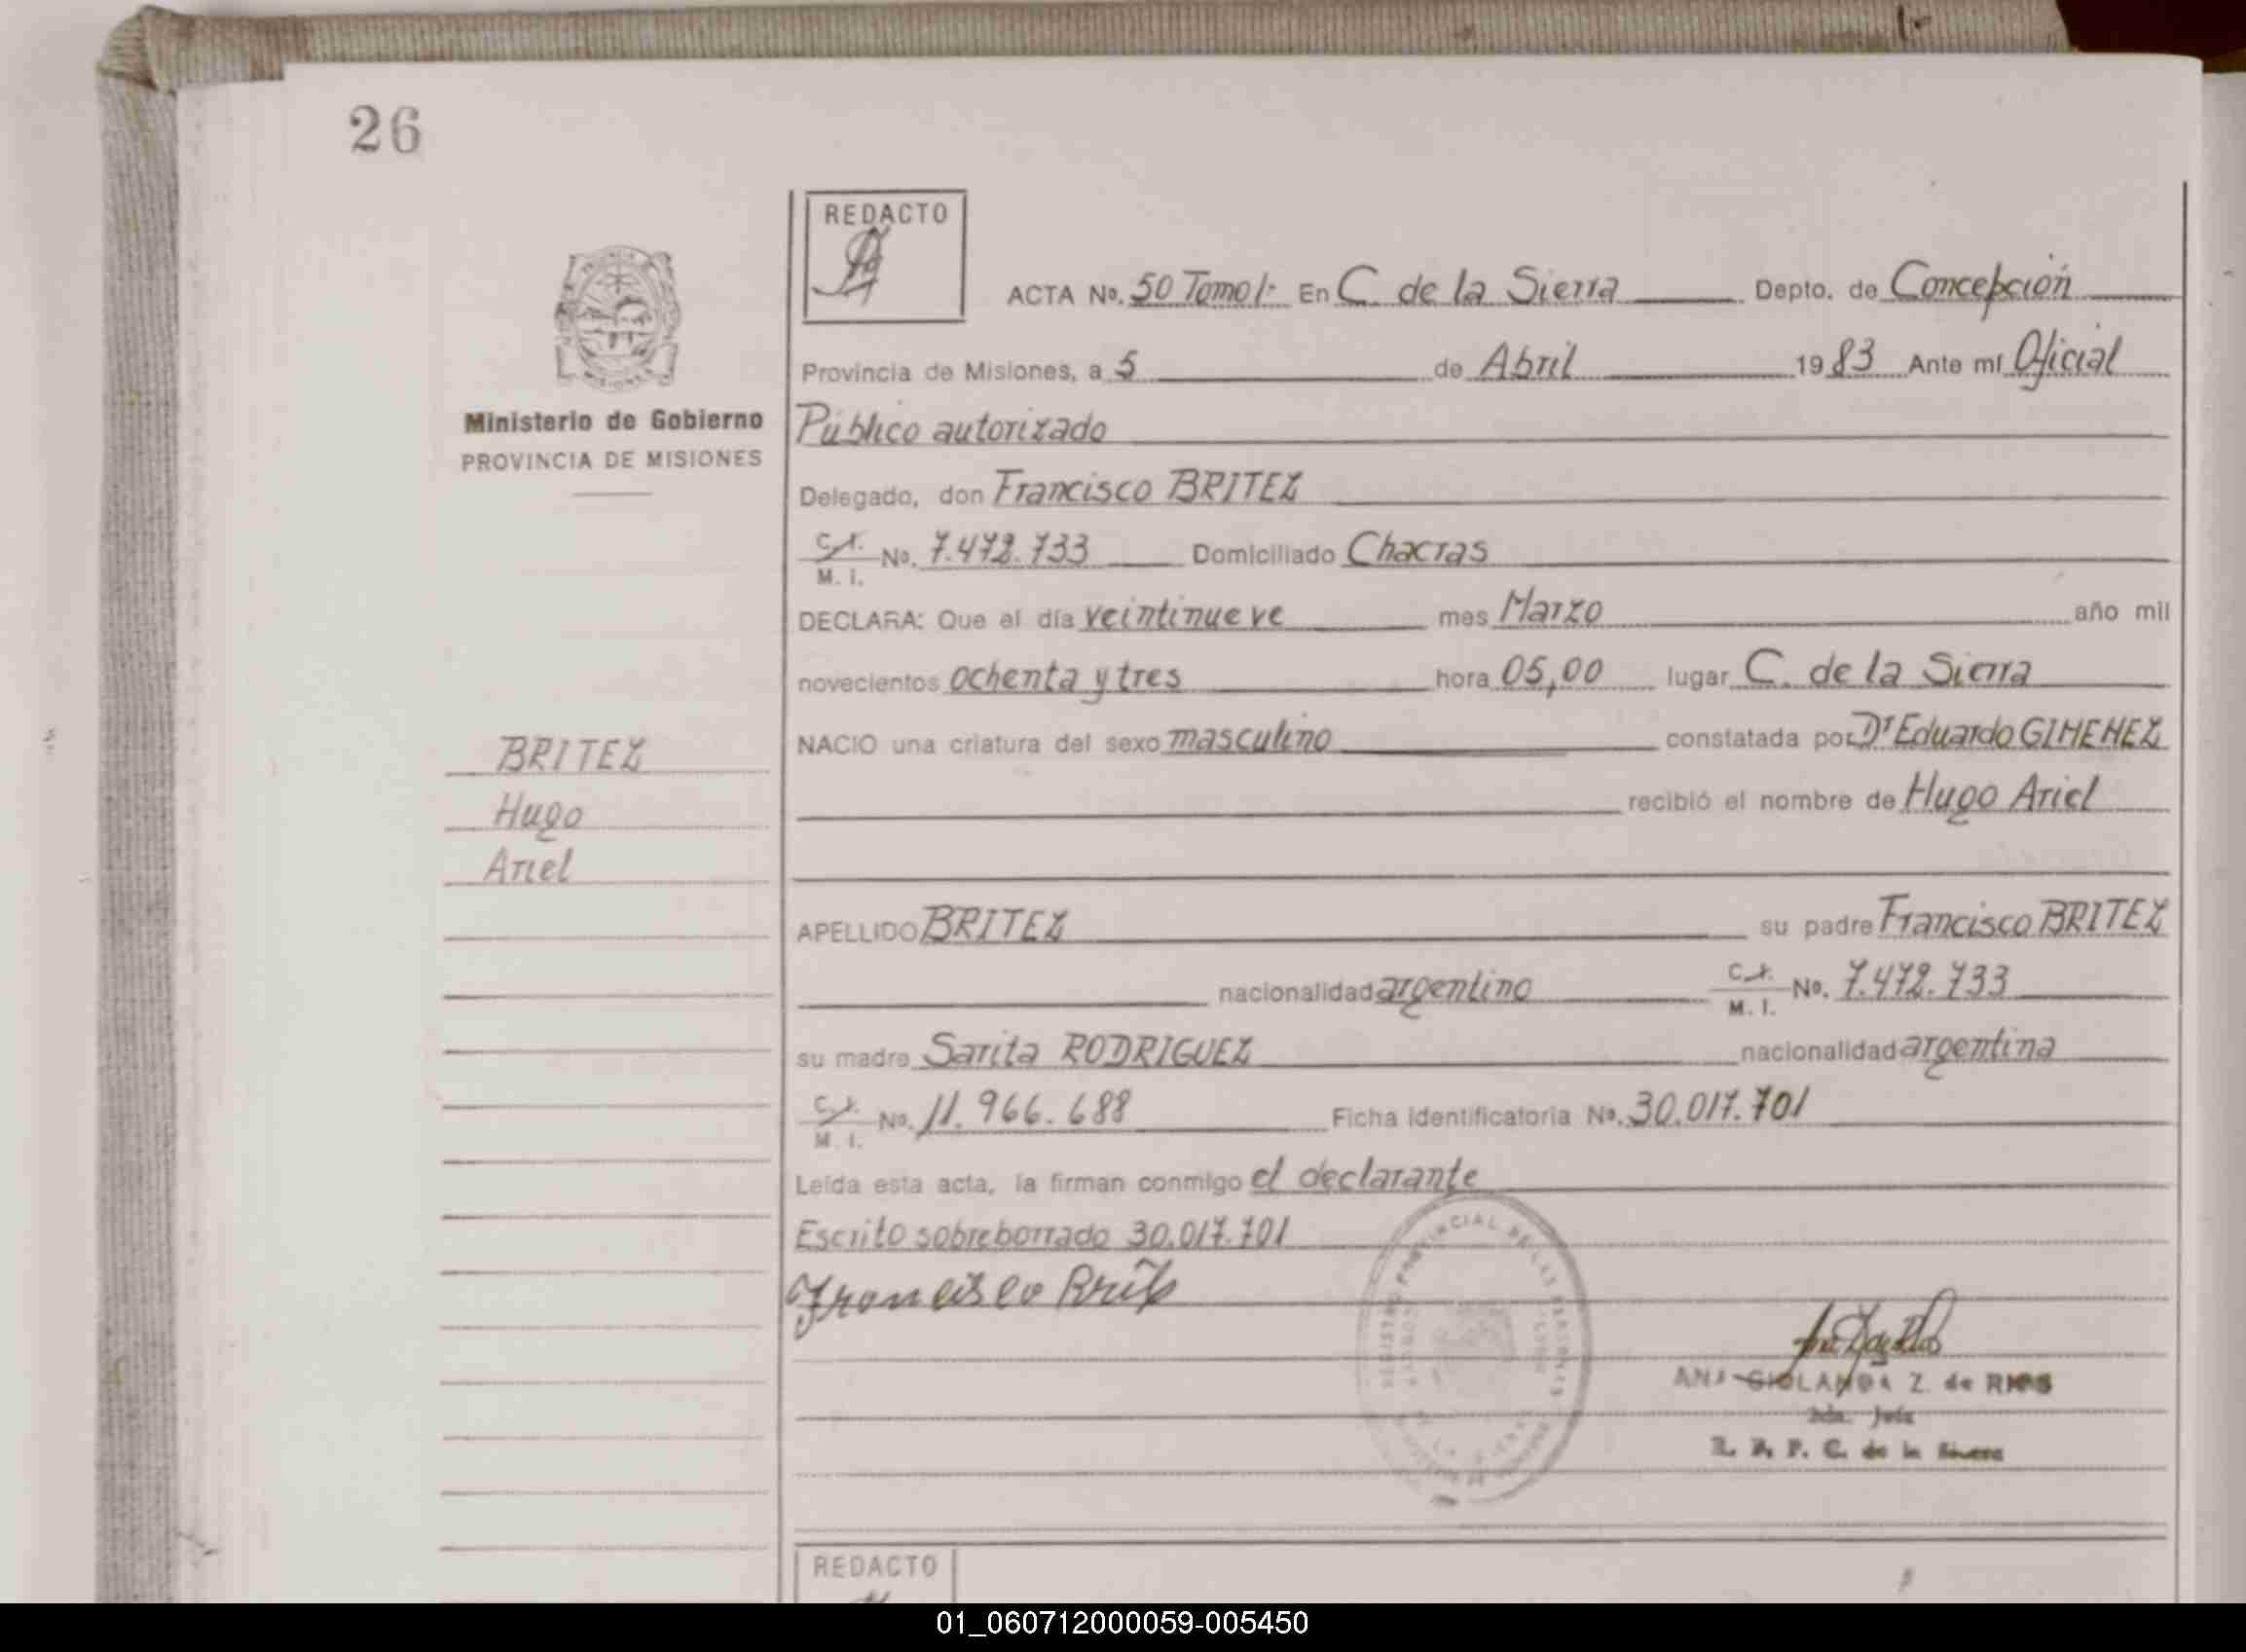 26
REDACTO
ACTA No. 50 Tomo I- En C. de la Sierra Depto. de Concepción
Provincia de Misiones, a 5 de Abril 1983 Ante mí Oficial
Ministerio de Gobierno
PROVINCIA DE MISIONES
Público autorizado
Delegado, don Francisco BRITEZ
C. I. M. I. No. 7.472.733 Domiciliado Chacras
DECLARA: Que el día veintinueve mes Marzo año mil
novecientos ochenta y tres hora 05,00 lugar C. de la Sierra
NACIO una criatura del sexo masculino constatada por Dr Eduardo GIMENEZ
recibió el nombre de Hugo Ariel
BRITEZ
Hugo
Ariel
APELLIDO BRITEZ su padre Francisco BRITEZ
nacionalidad argentino C. I. M. I. No. 7.472.733
su madre Sarita RODRIGUEZ nacionalidad argentina
C. I. M. I. No. 11.966.688 Ficha identificatoria No. 30.017.701
Leída esta acta, la firman conmigo el declarante
Escrito sobreborrado 30.017.701
Francisco Brites
ANA GIOLANDA Z. de RIOS
R. P. C. de la
REDACTO
01_060712000059-005450